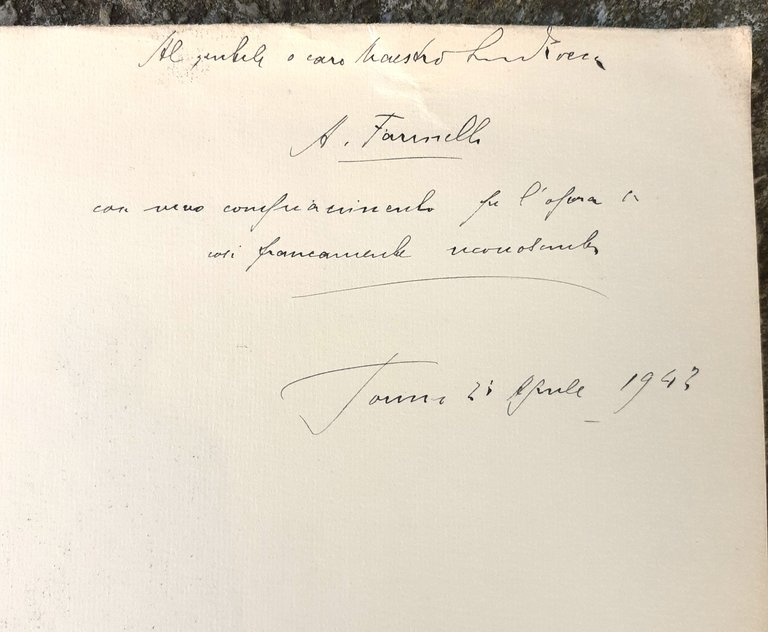 Al gentile e caro Maestro Lud. Rocca
A. Farinelli
con vivo compiacimento per l'opera
così francamente
Torino 21 Aprile 1942